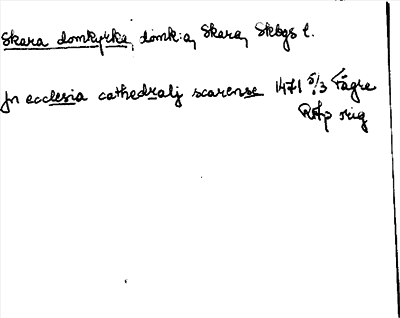 Skara domkyrka, domk:a, Skara, Skbgs l.
In ecclesia cathedralj scarense 1471 5/3 Fägre
RAp orig